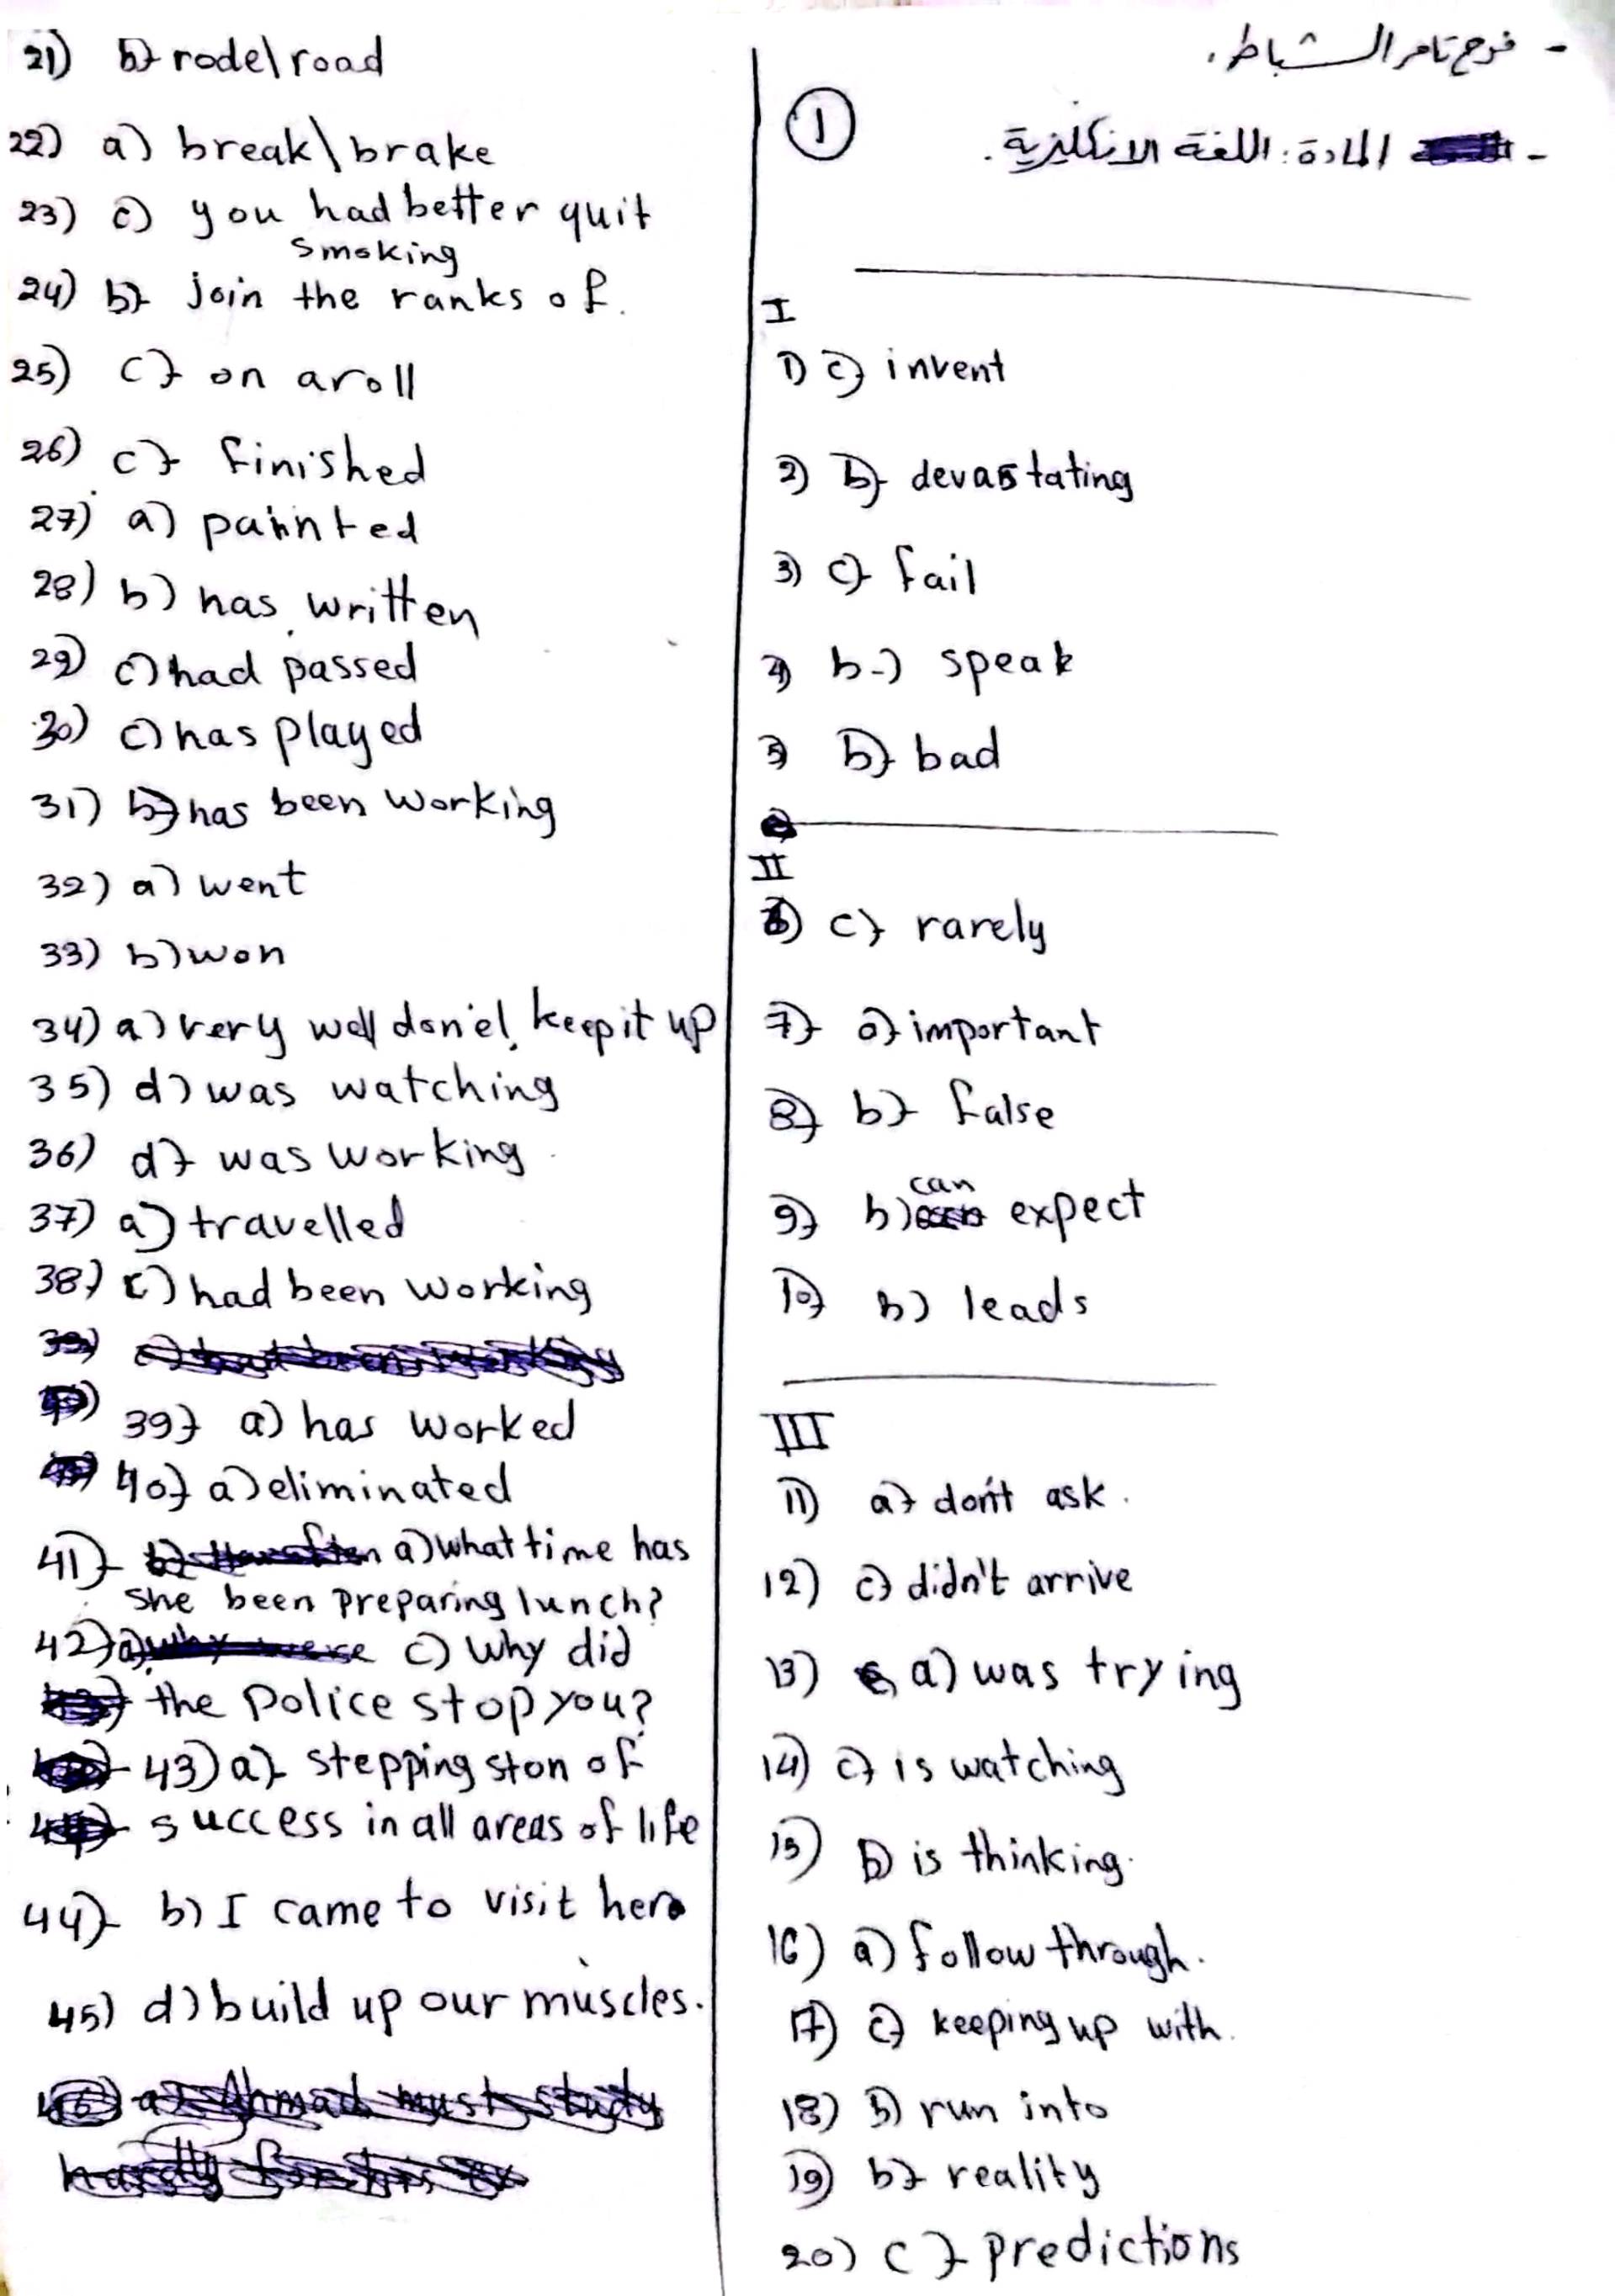 - فرح تامر الشباط.
- المادة: اللغة الانكليزية.
1
I
1) c) invent
2) b) devastating
3) c) fail
4) b-) speak
5) b) bad
II
6) c) rarely
7) a) important
8) b) false
9) b) can expect
10) b) leads
III
11) a) don't ask.
12) c) didn't arrive
13) a) was trying
14) c) is watching
15) b) is thinking.
16) a) follow through.
17) c) keeping up with.
18) b) run into
19) b) reality
20) c) predictions
21) b) rode\road
22) a) break\brake
23) c) you had better quit
smoking
24) b) join the ranks of.
25) c) on aroll
26) c) finished
27) a) painted
28) b) has written
29) c) had passed
30) c) has played
31) b) has been working
32) a) went
33) b) won
34) a) very well done! keep it up
35) d) was watching
36) d) was working.
37) a) travelled
38) c) had been working
39) a) has worked
40) a) eliminated
41) a) what time has
she been preparing lunch?
42) c) why did
the police stop you?
43) a) stepping ston of
success in all areas of life
44) b) I came to visit her
45) d) build up our muscles.